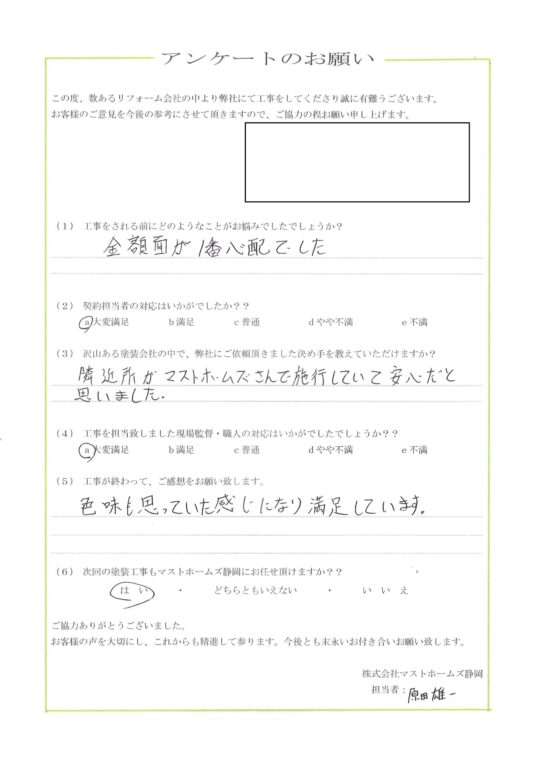 アンケートのお願い
この度、数あるリフォーム会社の中より弊社にて工事をしてくださり誠に有難うございます。
お客様のご意見を今後の参考にさせて頂きますので、ご協力の程お願い申し上げます。
(1) 工事をされる前にどのようなことがお悩みでしたでしょうか？
金額面が1番心配でした
(2) 契約担当者の対応はいかがでしたか？？
a大変満足 b満足 c普通 dやや不満 e不満
(3) 沢山ある塗装会社の中で、弊社にご依頼頂きました決め手を教えていただけますか？
隣近所がマストホームズさんで施行していて安心だと
思いました.
(4) 工事を担当致しました現場監督・職人の対応はいかがでしたでしょうか？？
a大変満足 b満足 c普通 dやや不満 e不満
(5) 工事が終わって、ご感想をお願い致します。
色味も思っていた感じになり満足しています。
(6) 次回の塗装工事もマストホームズ静岡にお任せ頂けますか？？
はい ・ どちらともいえない ・ いいえ
ご協力ありがとうございました。
お客様の声を大切にし、これからも精進して参ります。今後とも末永いお付き合いお願い致します。
株式会社マストホームズ静岡
担当者：原田雄一